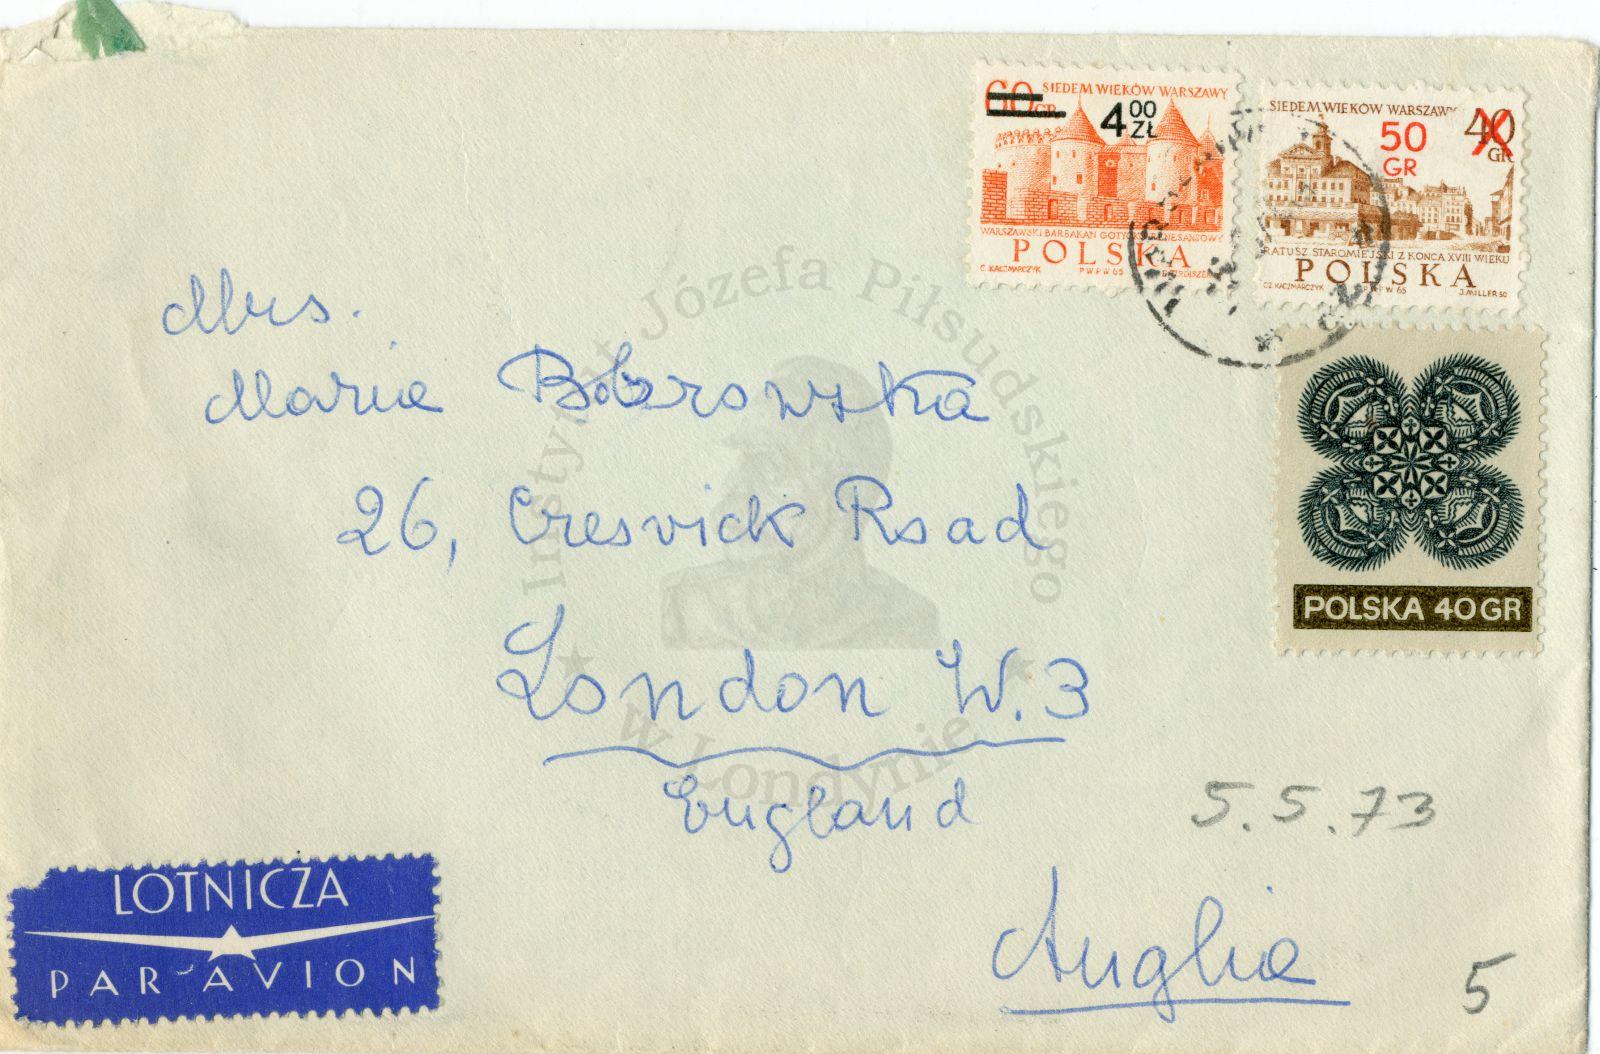 60 GR SIEDEM WIEKÓW WARSZAWY
4 00 ZŁ
WARSZAWSKI BARBAKAN
POLSKA
C. KACZMARCZYK PWPW 65
SIEDEM WIEKÓW WARSZAWY 40 GR
50 GR
RATUSZ STAROMIEJSKI Z KOŃCA XVIII WIEKU
POLSKA
CZ. KACZMARCZYK PWPW 65 J. MILLER SC
POLSKA 40 GR
Mrs.
Maria Bobrowska
26, Cresvick Road
London W.3
England
5.5.73
Anglia
5
LOTNICZA
PAR AVION
Instytut Józefa Piłsudskiego
w Londynie